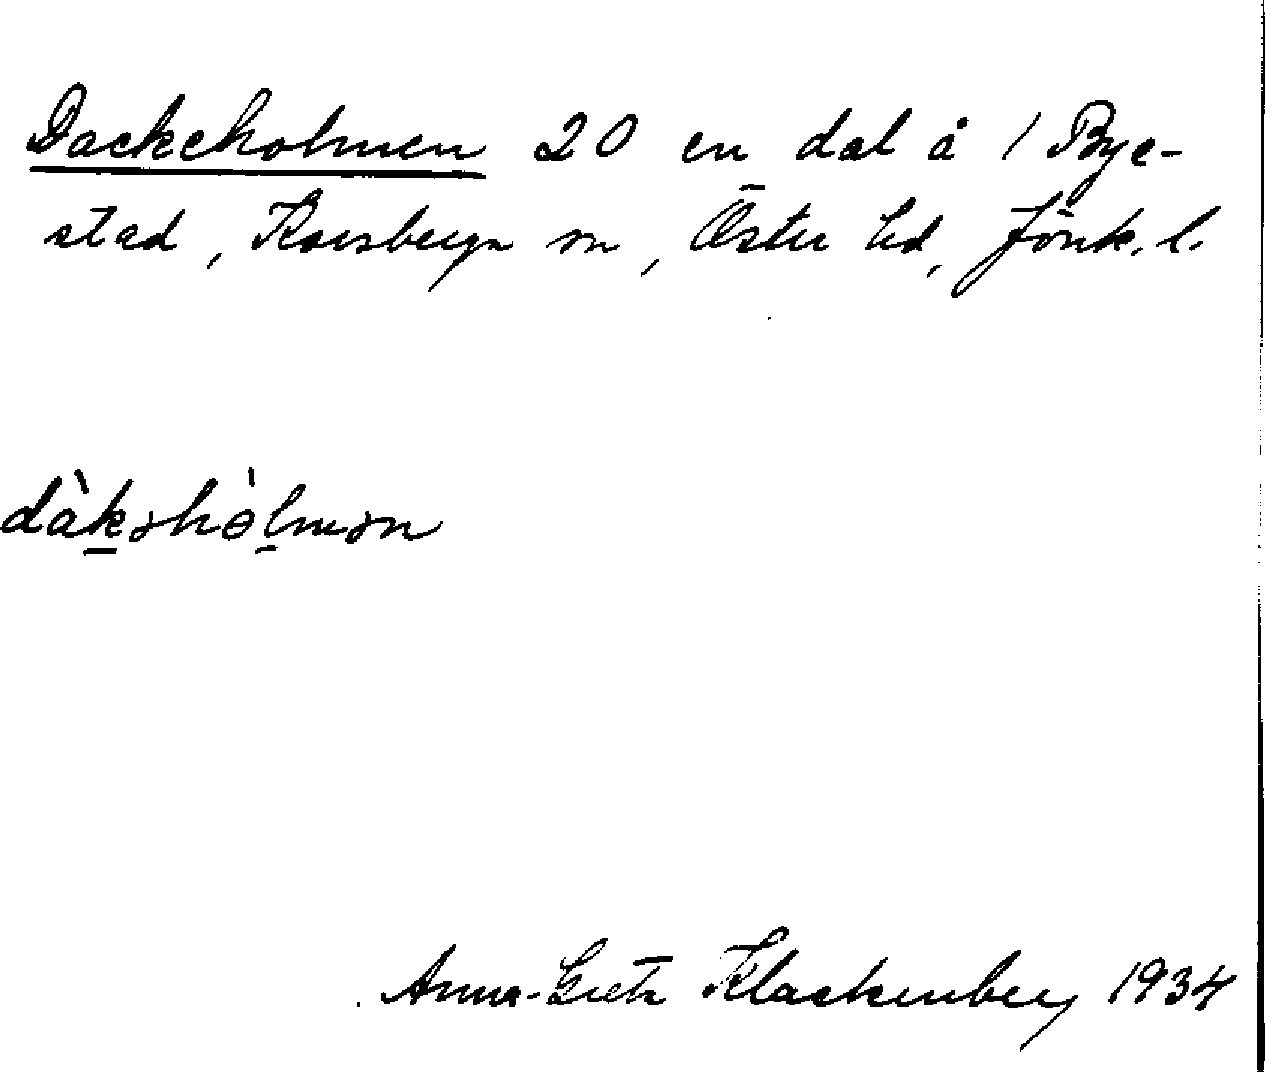 Dackeholmen 20 en dal å 1 Bye-
stad, Korsberga sn, Öster hd, Jönk. l.
dàkəhòlmən
Anna-Greta Klackenberg 1934